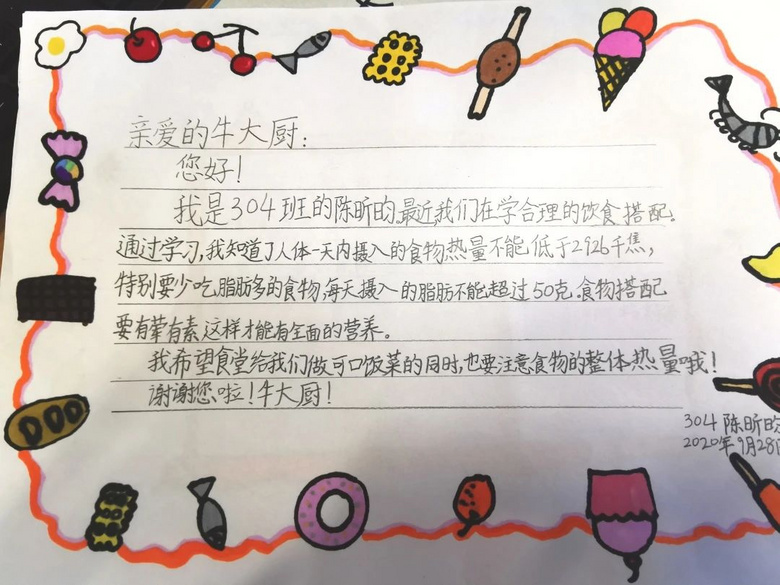 亲爱的牛大厨:
您好!
我是304班的陈昕昀,最近,我们在学合理的饮食搭配。
通过学习,我知道了人体一天内摄入的食物热量不能低于2926千焦,
特别要少吃脂肪多的食物,每天摄入的脂肪不能超过50克.食物搭配
要有荤有素,这样才能有全面的营养。
我希望食堂给我们做可口饭菜的同时,也要注意食物的整体热量哦!
谢谢您啦!牛大厨!
304 陈昕昀
2020年9月28日